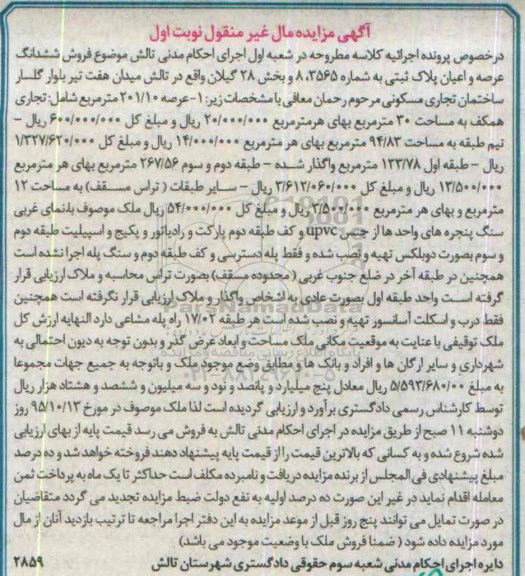 آگهی مزایده مال غیر منقول نوبت اول
در خصوص پرونده اجرائیه کلاسه مطروحه در شعبه اول اجرای احکام مدنی تالش موضوع فروش ششدانگ
عرصه و اعیان پلاک ثبتی به شماره ۸،۳۵۶۵ و بخش ۲۸ گیلان واقع در تالش میدان هفت تیر بلوار گلسار
ساختمان تجاری مسکونی مرحوم رحمان معافی با مشخصات زیر: ۱-عرصه ۲۰۱/۱۰ مترمربع شامل: تجاری
همکف به مساحت ۳۰ مترمربع بهای هر مترمربع ۲۰/۰۰۰/۰۰۰ ریال و مبلغ کل ۶۰۰/۰۰۰/۰۰۰ ریال –
نیم طبقه به مساحت ۹۴/۸۳ مترمربع بهای هر مترمربع ۱۴/۰۰۰/۰۰۰ ریال و مبلغ کل ۱/۳۲۷/۶۲۰/۰۰۰
ریال – طبقه اول ۱۲۳/۷۸ مترمربع واگذار شده – طبقه دوم و سوم ۲۶۷/۵۶ مترمربع بهای هر مترمربع
۱۳/۵۰۰/۰۰۰ ریال و مبلغ کل ۳/۶۱۲/۰۶۰/۰۰۰ ریال – سایر طبقات ( تراس مسقف) به مساحت ۱۲
مترمربع و بهای هر مترمربع ۳/۵۰۰/۰۰۰ ریال و مبلغ کل ۵۴/۰۰۰/۰۰۰ ریال ملک موصوف بانمای غربی
سنگ پنجره های واحد ها از جنس upvc و کف طبقه دوم پارکت و رادیاتور و پکیج و اسپیلیت طبقه دوم
و سوم بصورت دوبلکس تهیه و نصب شده و فقط پله دسترسی و کف طبقه دوم و سنگ پله اجرا نشده است
همچنین در طبقه آخر در ضلع جنوب غربی ( محدوده مسقف) بصورت تراس محاسبه و ملاک ارزیابی قرار
گرفته است واحد طبقه اول بصورت عادی به اشخاص واگذار و ملاک ارزیابی قرار نگرفته است همچنین
فقط درب و اسکلت آسانسور تهیه و نصب شده است هر طبقه ۱۷/۰۲ راه پله مشاعی دارد النهایه ارزش کل
ملک توقیفی با عنایت به موقعیت مکانی ملک مساحت و ابعاد عرض گذر و بدون توجه به دیون احتمالی به
شهرداری و سایر ارگان ها و افراد و بانک ها و مطابق وضع موجود ملک و باتوجه به جمیع جهات مجموعا
به مبلغ ۵/۵۹۳/۶۸۰/۰۰ ریال معادل پنج میلیارد و پانصد و نود و سه میلیون و ششصد و هشتاد هزار ریال
توسط کارشناس رسمی دادگستری برآورد و ارزیابی گردیده است لذا ملک موصوف در مورخ ۹۵/۱۰/۱۳ روز
دوشنبه ۱۱ صبح از طریق مزایده در اجرای احکام مدنی تالش به فروش می رسد قیمت پایه از بهای ارزیابی
شده شروع شده و به کسانی که بالاترین قیمت را از قیمت پایه پیشنهاد دهند فروخته خواهد شد و ده درصد
مبلغ پیشنهادی فی المجلس از برنده مزایده دریافت و نامبرده مکلف است حداکثر تا یک ماه به پرداخت ثمن
معامله اقدام نماید در غیر این صورت ده درصد اولیه به نفع دولت ضبط مزایده تجدید می گردد متقاضیان
در صورت تمایل می توانند پنج روز قبل از موعد مزایده به این دفتر اجرا مراجعه تا ترتیب بازدید آنان از مال
مورد مزایده داده شود ( ضمنا فروش ملک با وضعیت موجود می باشد)
دایره اجرای احکام مدنی شعبه سوم حقوقی دادگستری شهرستان تالش ۲۸۵۹